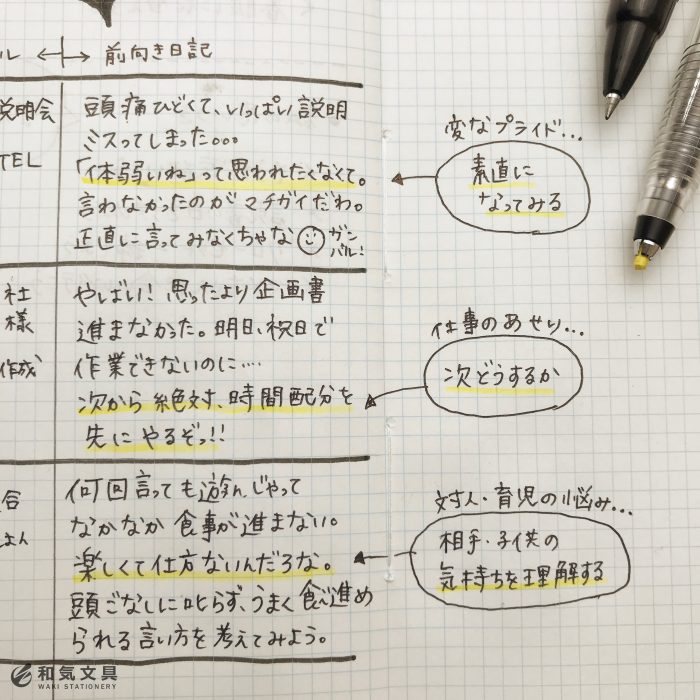 ル ←|→ 前向き日記
説明会
TEL
頭痛ひどくて、いっぱい説明
ミスってしまった。。。
「体弱いね」って思われたくなくて。
言わなかったのがマチガイだわ。
正直に言ってみなくちゃな ガン
バル!
変なプライド...
素直に
なってみる
社
様
作成
やばい! 思ったより企画書
進まなかった。明日、祝日で
作業できないのに....
次から絶対、時間配分を
先にやるぞっ!!
仕事のあせり...
次どうするか
合
はん
何回言っても遊んじゃって
なかなか食事が進まない。
楽しくて仕方ないんだろな。
頭ごなしに叱らず、うまく食べ進め
られる言い方を考えてみよう。
対人・育児の悩み...
相手・子供の
気持ちを理解する
和気文具
WAKI STATIONERY